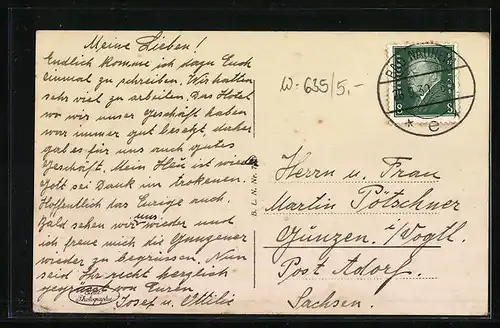 Meine Lieben!
Endlich komme ich dazu Euch
einmal zu schreiben. Wir hatten
sehr viel zu arbeiten. Das Hotel
wo wir unser Geschäft haben
war immer gut besetzt, daher
gab es für uns auch gutes
Geschäft. Mein Heu ist wieder
Gott sei Dank im trokenen.
Hoffentlich das Eurige auch.
Bald sehen wir uns wieder und
ich freue mich die Gunzener
wieder zu begrüssen. Nun
seid Ihr recht herzlich
gegrüsst von Euren
Josef u. Ottilie
Photographie
W-635/5,-
B. L. N. Nr.
* e *
Herrn u. Frau
Martin Pötschner
Gunzen i/Vogtl.
Post Adorf.
Sachsen.